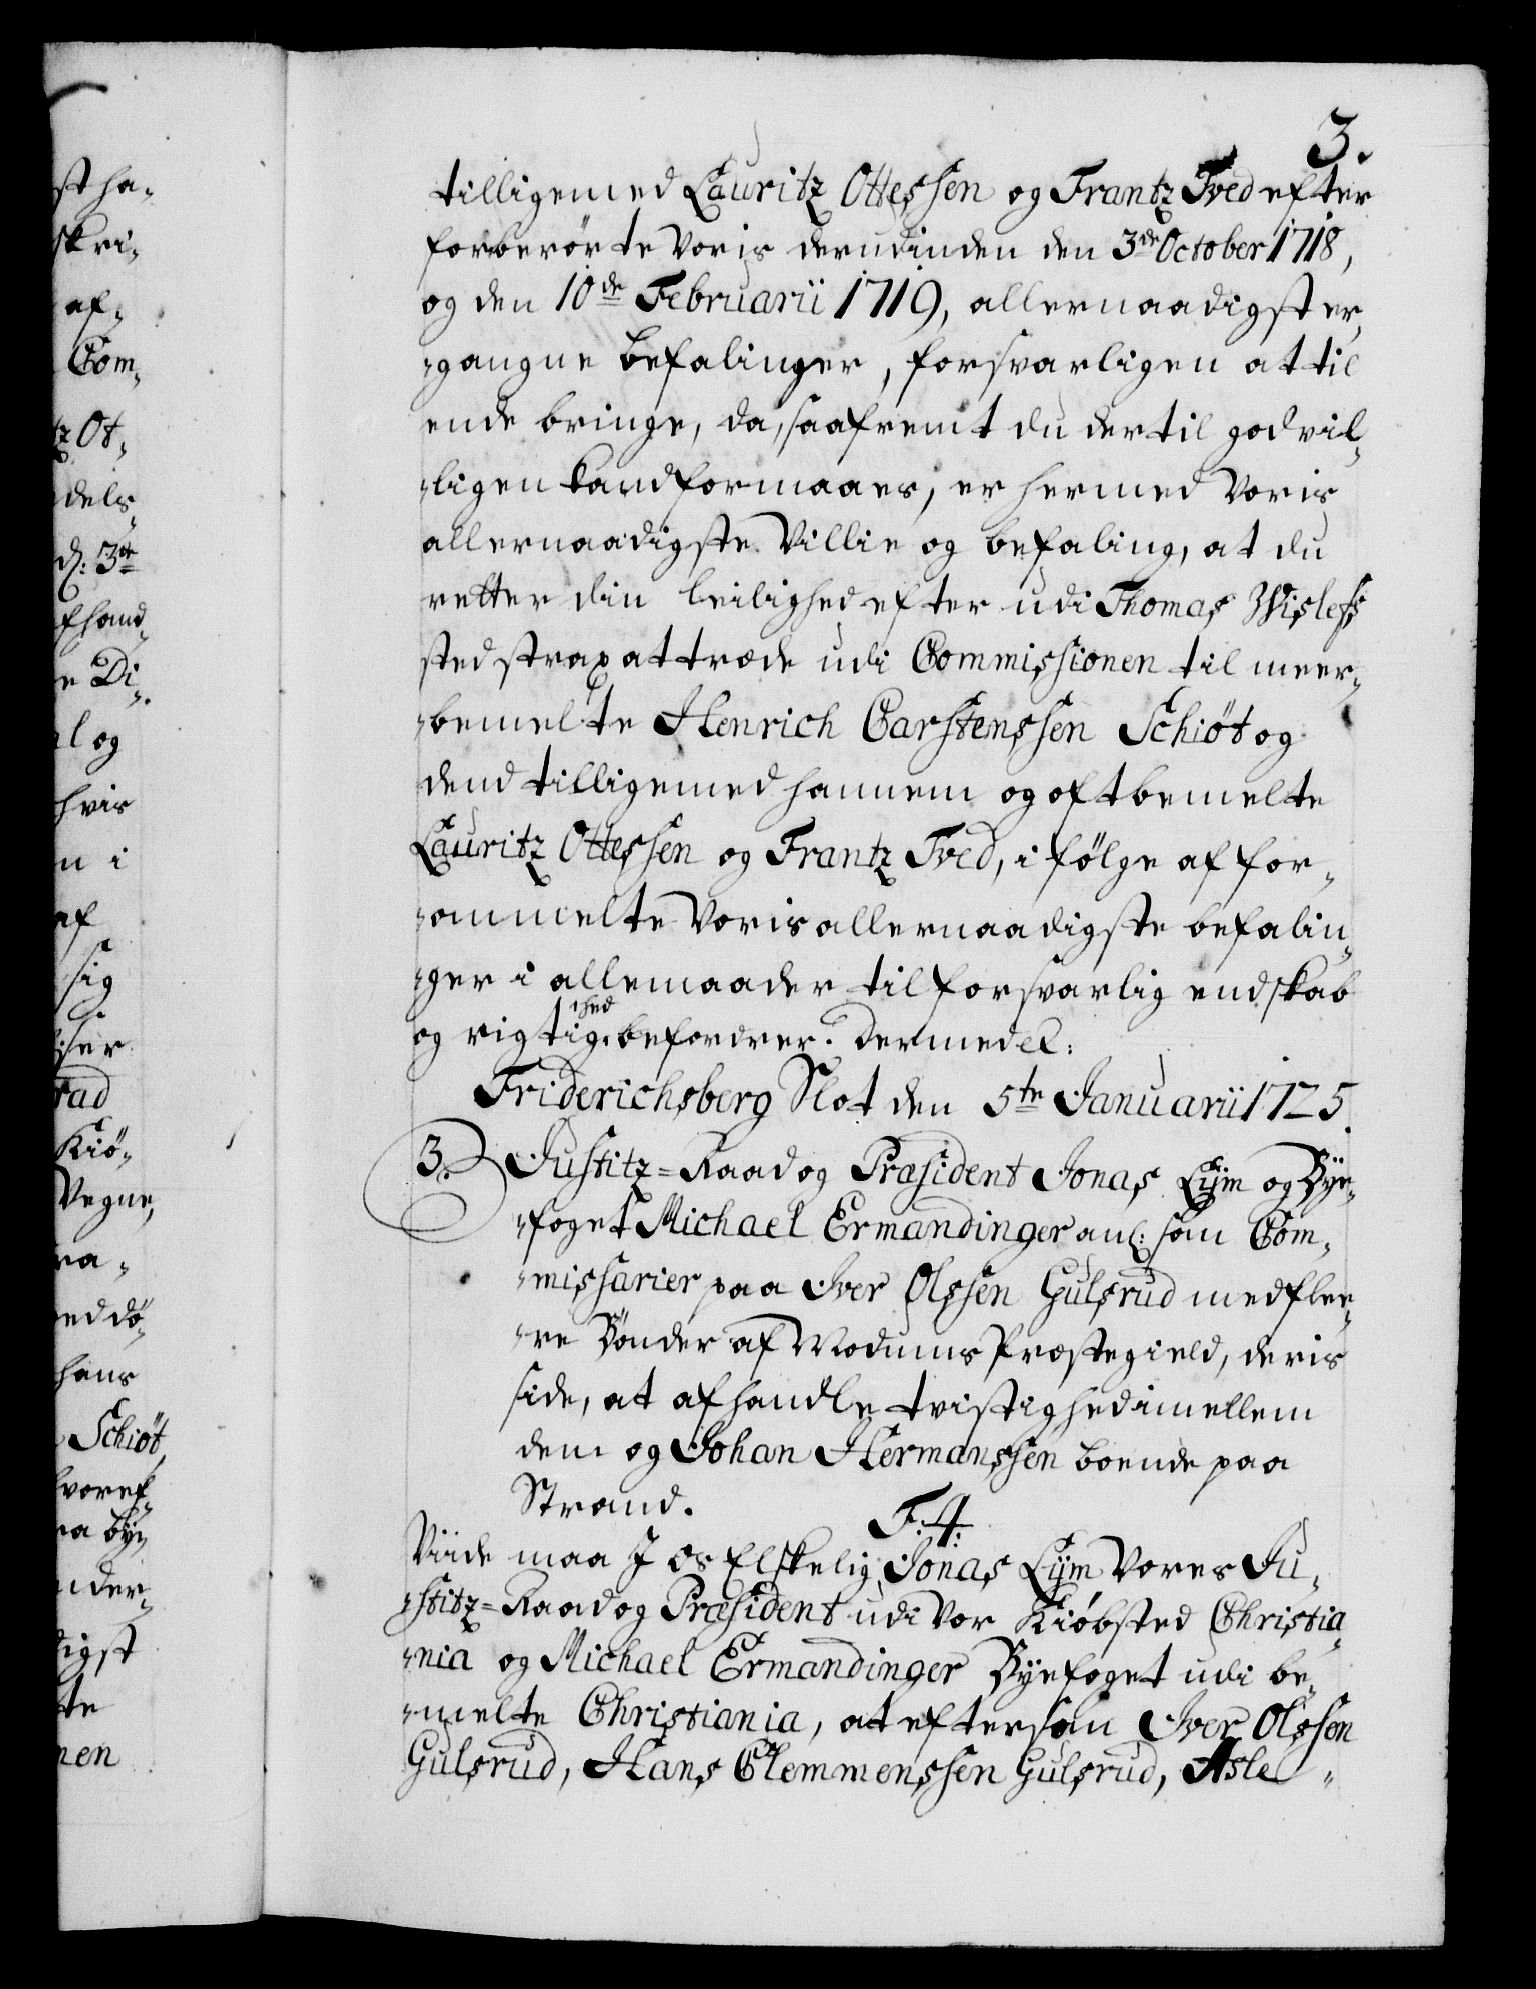 3.
tilligemed Lauritz Ottessen og Frantz Tved efter
forberørte Voris derudinden den 3de October 1718,
og den 10de Februarii 1719, allernaadigst er,
"gangne befalinger, forsvarligen at til
ende bringe, da, saafremt du dertil godvil,
"ligen kand formaaes, er hermed Voris
allernaadigste Villie og befaling, at du
retter din leilighed efter udi Thomas Wislefs
sted strax at træde udi Commissionen til meer,
"bemelte Henrich Carstenssen Schiøt og
dend tilligemed hannem og oftbemelte
Lauritz Ottessen og Frantz Tved, i følge af for,
"ommelte Voris allernaadigste befalin,
"ger i allemaader til forsvarlig endskab
og rigtighed befordrer. Dermed etc:
Friderichsberg Slot den 5te Januarii 1725.
3. Justitz=Raad og Præsident Jonas Lym og Bye,
"foget Michael Ermandinger anl: som Com,
"missarier paa Iver Olssen Gulsrud med flee,
"re Bønder af Modums Præstegield, deris
side, at afhandle tvistighed imellem
dem og Johan Hermanssen boende paa
Strand.
F. 4.
Viide maa I os Elskelig, Jonas Lym Vores Ju,
"stitz=Raad og Præsident udi Vor Kiøbsted Christia,
"nia og Michael Ermandinger Byefoget udi be,
"melte Christiania, at eftersom Iver Olssen
Gulsrud, Hans Clemmenssen Gulsrud, Asle
st ha,
skri,
af,
Com,
tz Ot,
dels,
d: 3de
fhand,
e Di,
l og
hvis
n i
af
sig
ser
rad
Kiø,
Vegne,
ra,
ed dø,
hans
Schiøt
hvoref,
ra bye
nder,
digst
te
nen